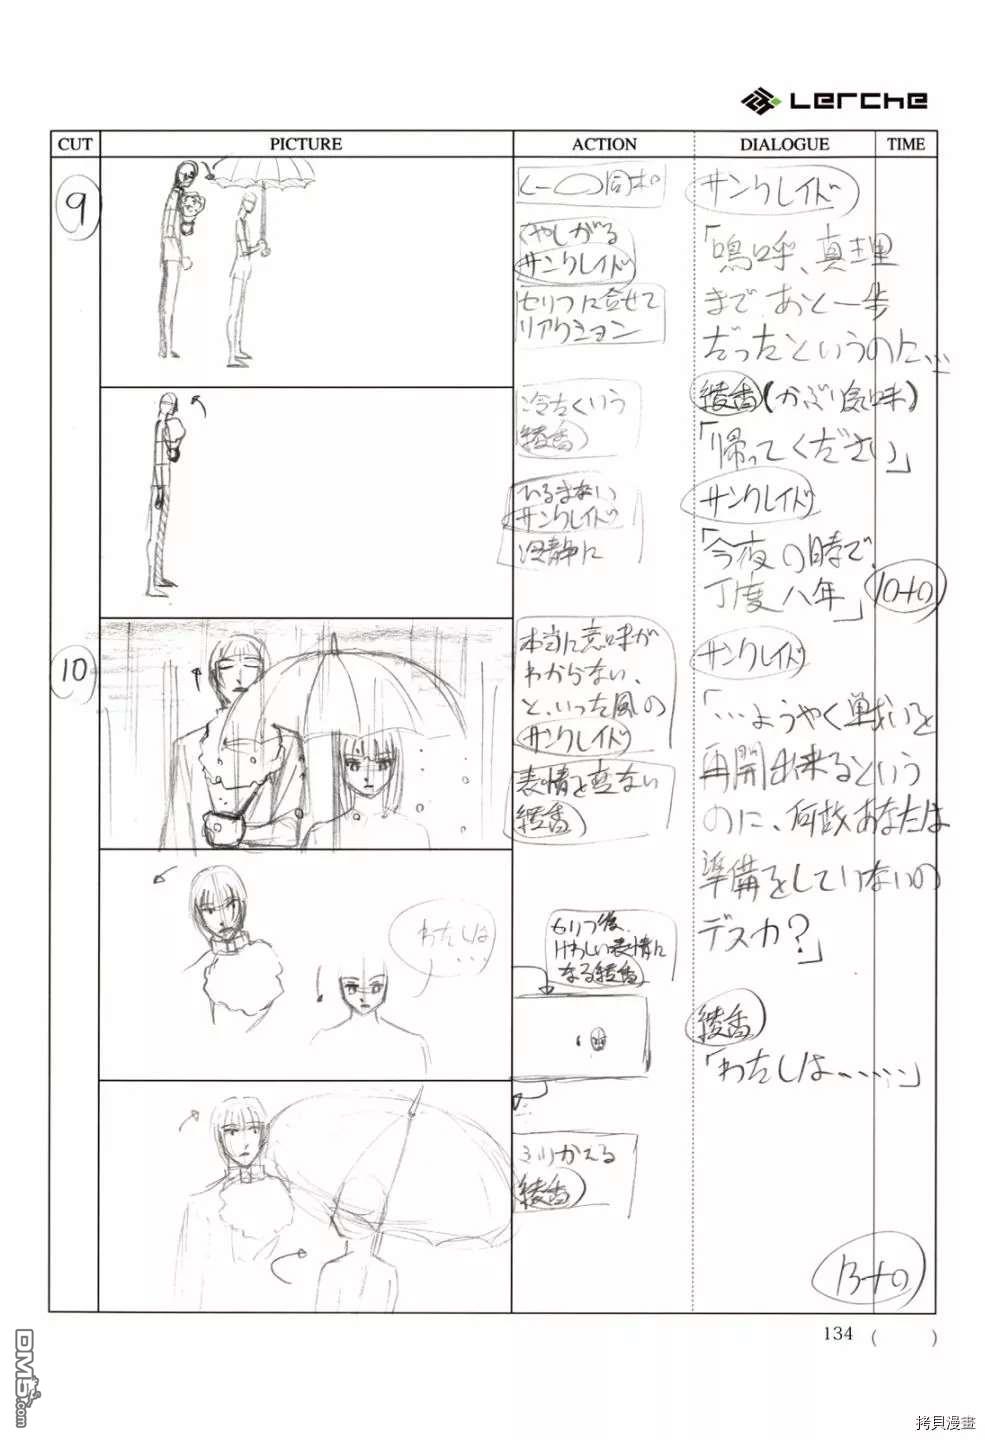 Lerche
CUT PICTURE ACTION DIALOGUE TIME
9
くやしがる
サンクレイド
セリフに合せて
リアクション
サンクレイド
「嗚呼、真理
まであと一歩
だったというのに…
冷たくいう
綾香
綾香(かぶり気味)
「帰ってください」
ひるまない
サンクレイド
冷静に
サンクレイド
「今夜の時で、
丁度八年」
10+0
10
本当に意味が
わからない、
と、いった風の
サンクレイド
表情を変えない
綾香
サンクレイド
「…ようやく戦いを
再開出来るという
のに、何故あなたは
準備をしていないの
デスカ?」
わたしは
…
セリフ後、
けわしい表情に
なる綾香
綾香
「わたしは……」
ふりかえる
綾香
13+0
134 ( )
DM5.com
拷貝漫畫